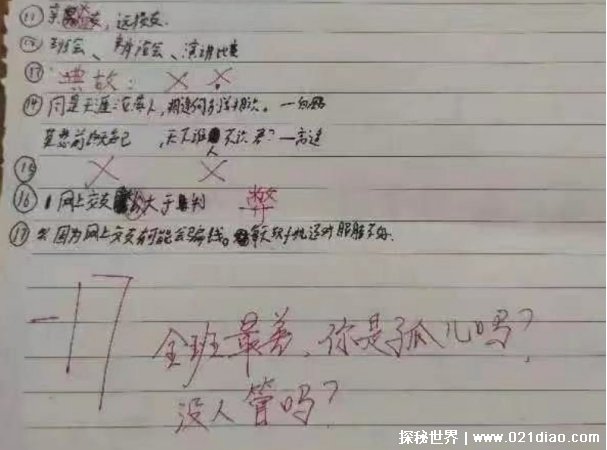 ⑪ 亲 友,远 友.
⑫ 班会、辩论会、演讲比赛
⑬ 典故: × ×
⑭ 同是天涯沦落人,相逢何必 相识。—白居易
莫愁前 知己,天下谁人不识君?—高适
⑮ × ×
⑯ 网上交友 大于 利 弊
⑰ 因为网上交友有可能会骗钱。每天玩手机还对眼睛不好.
-17
全班最差,你是孤儿吗?
没人管吗?
探秘世界|www.021diao.com